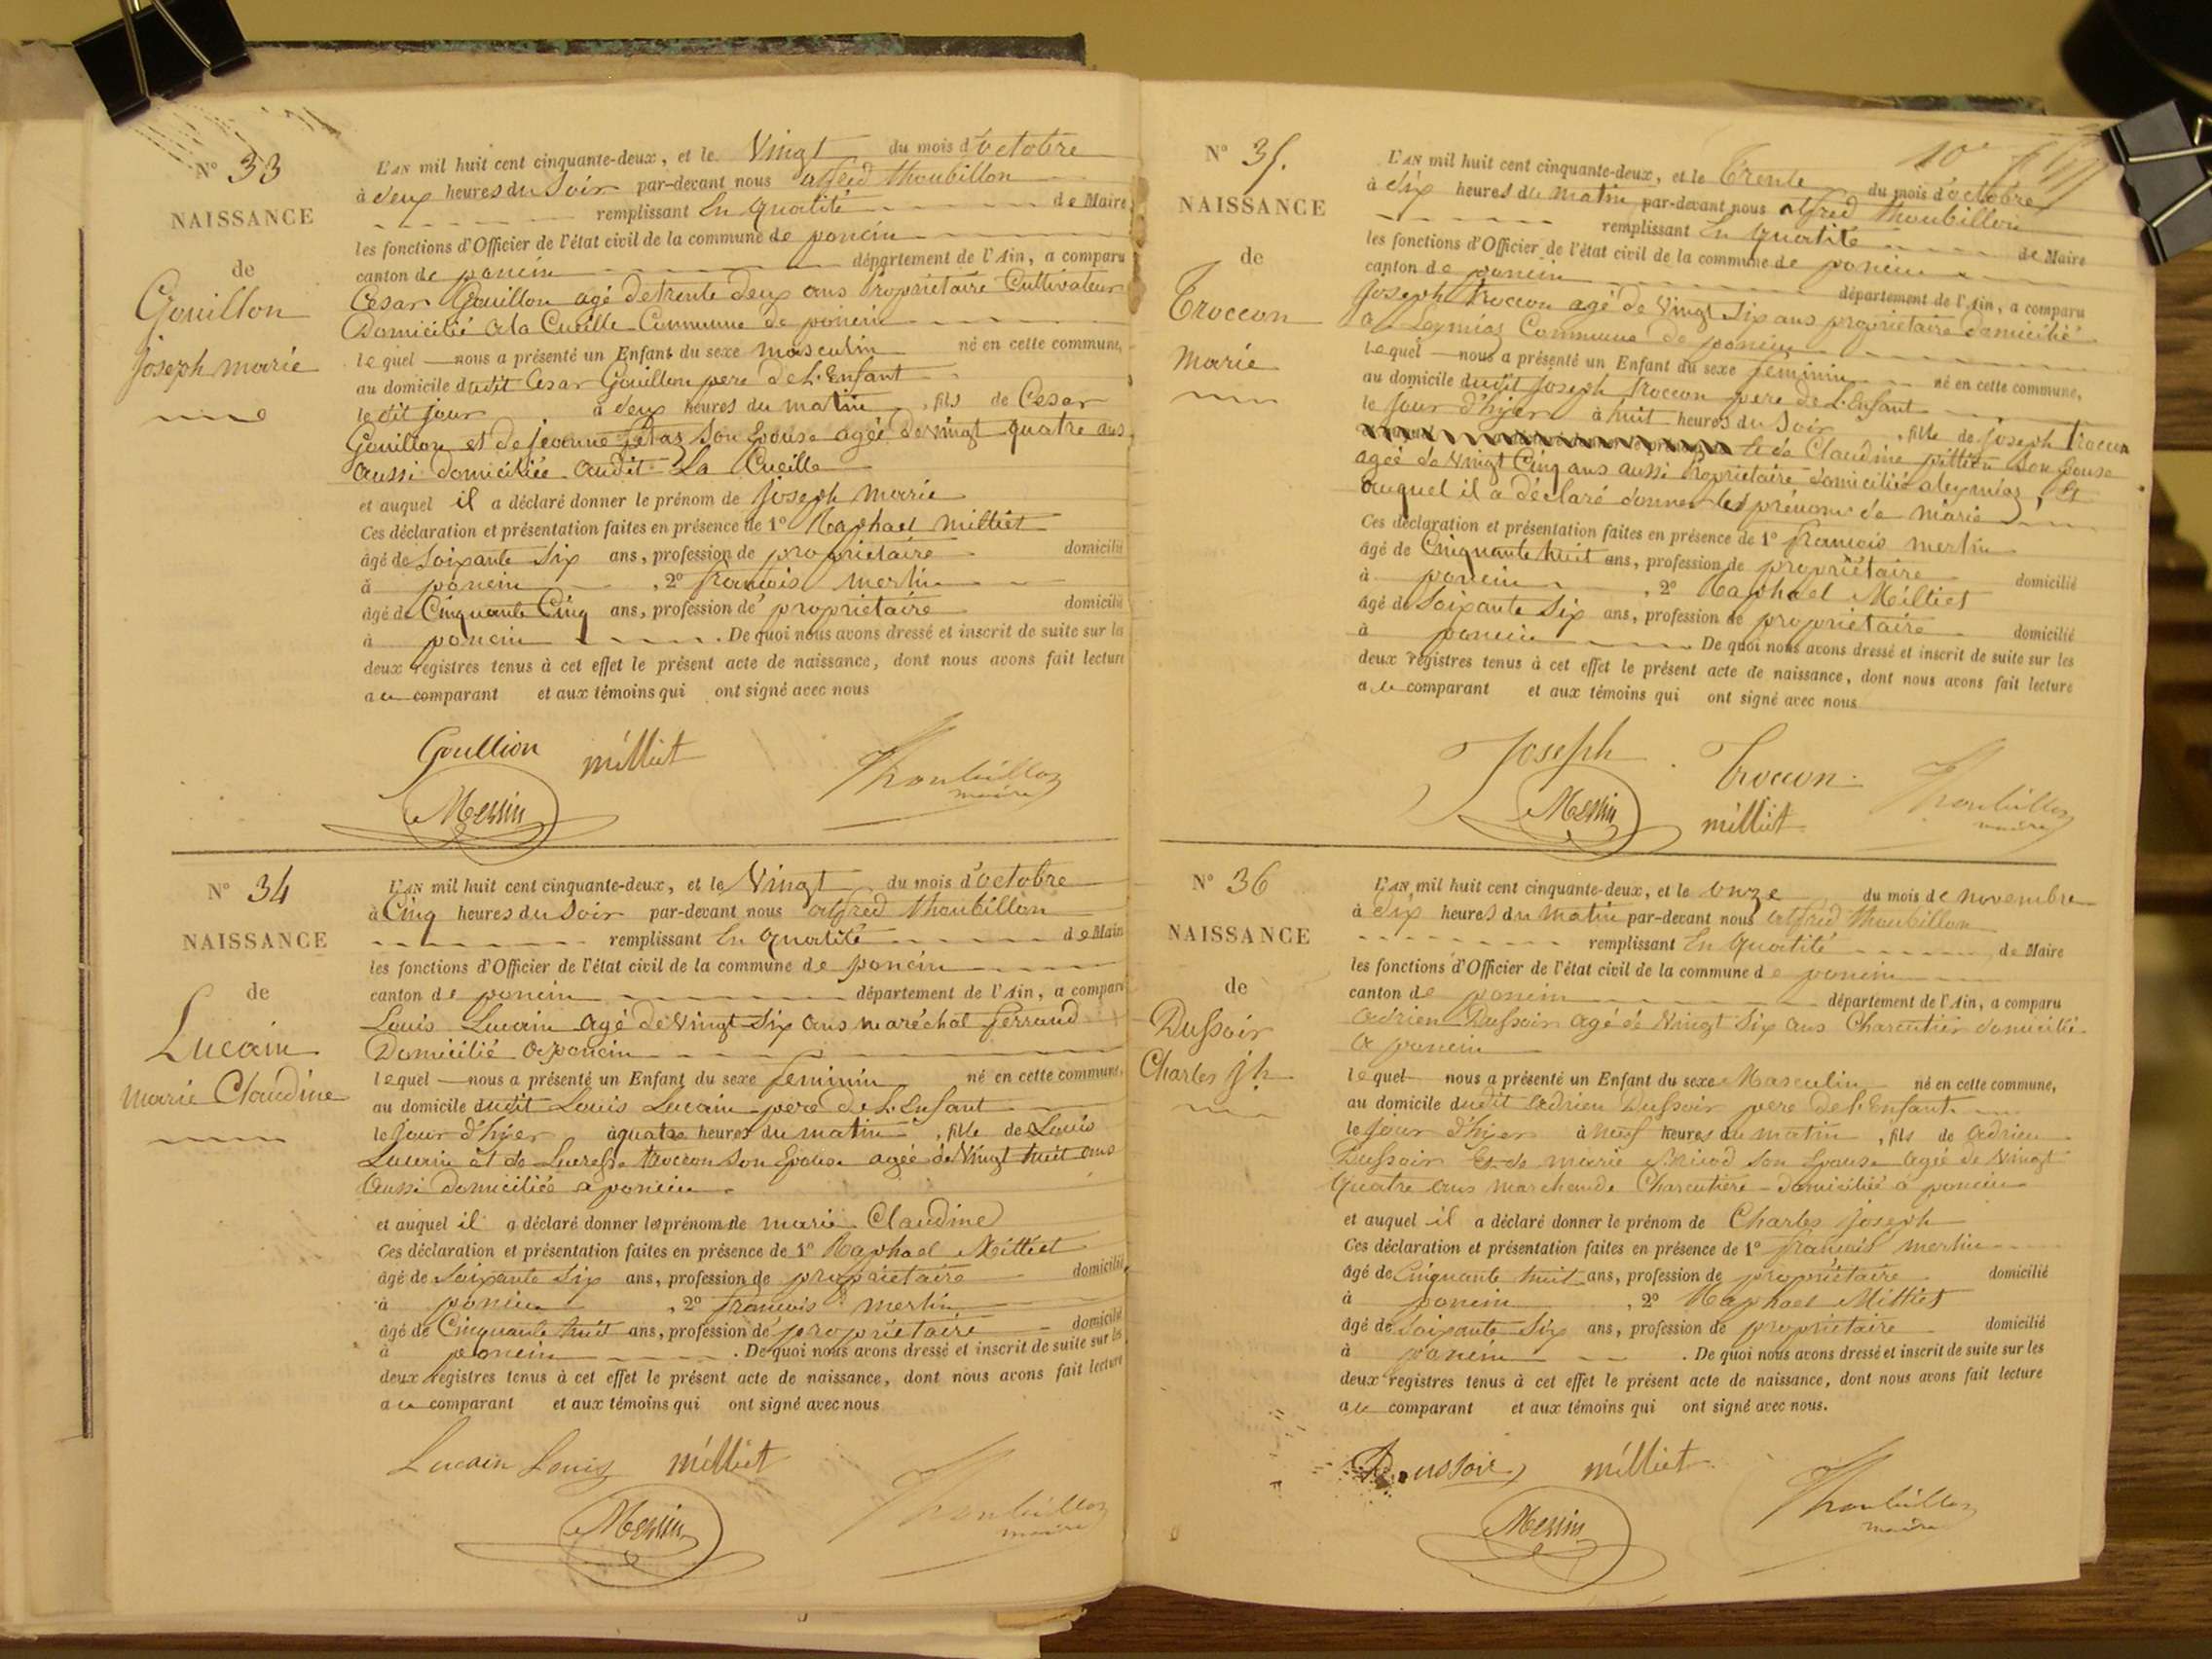 N° 33
NAISSANCE
de
Gouillon
joseph marie
L'AN mil huit cent cinquante-deux, et le Vingt du mois d'octobre
à deux heures du Soir par-devant nous alfred thoubillon
remplissant En qualité de Maire
les fonctions d'Officier de l'état civil de la commune de poncin
canton de poncin département de l'Ain, a comparu
César Gouillon agé de trente deux ans Propriétaire Cultivateur
Domicilié a la Cueille Commune de poncin
lequel nous a présenté un Enfant du sexe masculin né en cette commune,
au domicile dudit Cesar Gouillon pere de L'Enfant
le dit jour à deux heures du matin, fils de Cesar
Gouillon et de jeanne Son Epouse agée de vingt quatre ans
aussi domiciliée audit La Cueille
et auquel il a déclaré donner le prénom de joseph marie
Ces déclaration et présentation faites en présence de 1° Raphael milliet
âgé de Soixante Six ans, profession de propriétaire domicilié
à poncin, 2° francois merlin
âgé de Cinquante Cinq ans, profession de propriétaire domicilié
à poncin. De quoi nous avons dressé et inscrit de suite sur la
deux registres tenus à cet effet le présent acte de naissance, dont nous avons fait lecture
au comparant et aux témoins qui ont signé avec nous
Goullion milliet Thoubillon
maire
N° 34
NAISSANCE
de
Lucain
marie Claudine
L'AN mil huit cent cinquante-deux, et le Vingt du mois d'octobre
à Cinq heures du Soir par-devant nous alfred thoubillon
remplissant En qualité de Maire
les fonctions d'Officier de l'état civil de la commune de poncin
canton de poncin département de l'Ain, a comparu
Louis Lucain agé de Vingt Six ans maréchal ferrand
Domicilié a poncin
lequel nous a présenté un Enfant du sexe feminin né en cette commune,
au domicile dudit Louis Lucain pere de L'Enfant
le jour d'hyer à quatre heures du matin, fille de Louis
Lucain et de Son Epouse agée de Vingt huit ans
aussi domiciliée a poncin
et auquel il a déclaré donner les prénom de marie Claudine
Ces déclaration et présentation faites en présence de 1° Raphael Milliet
âgé de Soixante Six ans, profession de propriétaire domicilié
à poncin, 2° francois merlin
âgé de Cinquante huit ans, profession de propriétaire domicilié
à poncin. De quoi nous avons dressé et inscrit de suite sur les
deux registres tenus à cet effet le présent acte de naissance, dont nous avons fait lecture
au comparant et aux témoins qui ont signé avec nous
Lucain Louis milliet Thoubillon
maire
N° 35.
NAISSANCE
de
Troccon
Marie
L'AN mil huit cent cinquante-deux, et le Trente du mois d'octobre
à dix heures du matin par-devant nous alfred thoubillon
remplissant En qualité de Maire
les fonctions d'Officier de l'état civil de la commune de poncin
canton de poncin département de l'Ain, a comparu
Joseph troccon agé de Vingt Six ans propriétaire domicilié
a Leymiaz Commune de poncin
lequel nous a présenté un Enfant du sexe feminin né en cette commune,
au domicile dudit Joseph troccon pere de L'Enfant
le Jour d'hyer à huit heures du Soir, fille de joseph troccon
et de Claudine Son Epouse
agée de Vingt Cinq ans aussi Propriétaire domiciliée a leymiaz, Et
auquel il a déclaré donner les prénom de marie
Ces déclaration et présentation faites en présence de 1° francois merlin
âgé de Cinquante huit ans, profession de propriétaire domicilié
à poncin, 2° Raphael Milliet
âgé de Soixante Six ans, profession de propriétaire domicilié
à poncin. De quoi nous avons dressé et inscrit de suite sur les
deux registres tenus à cet effet le présent acte de naissance, dont nous avons fait lecture
au comparant et aux témoins qui ont signé avec nous
Joseph Troccon Thoubillon
milliet maire
N° 36
NAISSANCE
de
Dussoir
Charles jh
L'AN mil huit cent cinquante-deux, et le onze du mois de novembre
à dix heures du matin par-devant nous alfred thoubillon
remplissant En qualité de Maire
les fonctions d'Officier de l'état civil de la commune de poncin
canton de poncin département de l'Ain, a comparu
Adrien Dussoir agé de Vingt Six ans Charcutier domicilié
a poncin
lequel nous a présenté un Enfant du sexe Masculin né en cette commune,
au domicile dudit Adrien Dussoir pere de L'Enfant
le jour d'hyer à neuf heures du matin, fils de Adrien
Dussoir Et de marie Son Epouse agée de Vingt
quatre ans marchande Charcutière domiciliée a poncin
et auquel il a déclaré donner le prénom de Charles Joseph
Ces déclaration et présentation faites en présence de 1° francois merlin
âgé de Cinquante huit ans, profession de propriétaire domicilié
à poncin, 2° Raphael Milliet
âgé de Soixante Six ans, profession de propriétaire domicilié
à poncin. De quoi nous avons dressé et inscrit de suite sur les
deux registres tenus à cet effet le présent acte de naissance, dont nous avons fait lecture
au comparant et aux témoins qui ont signé avec nous.
Dussoir milliet Thoubillon
maire